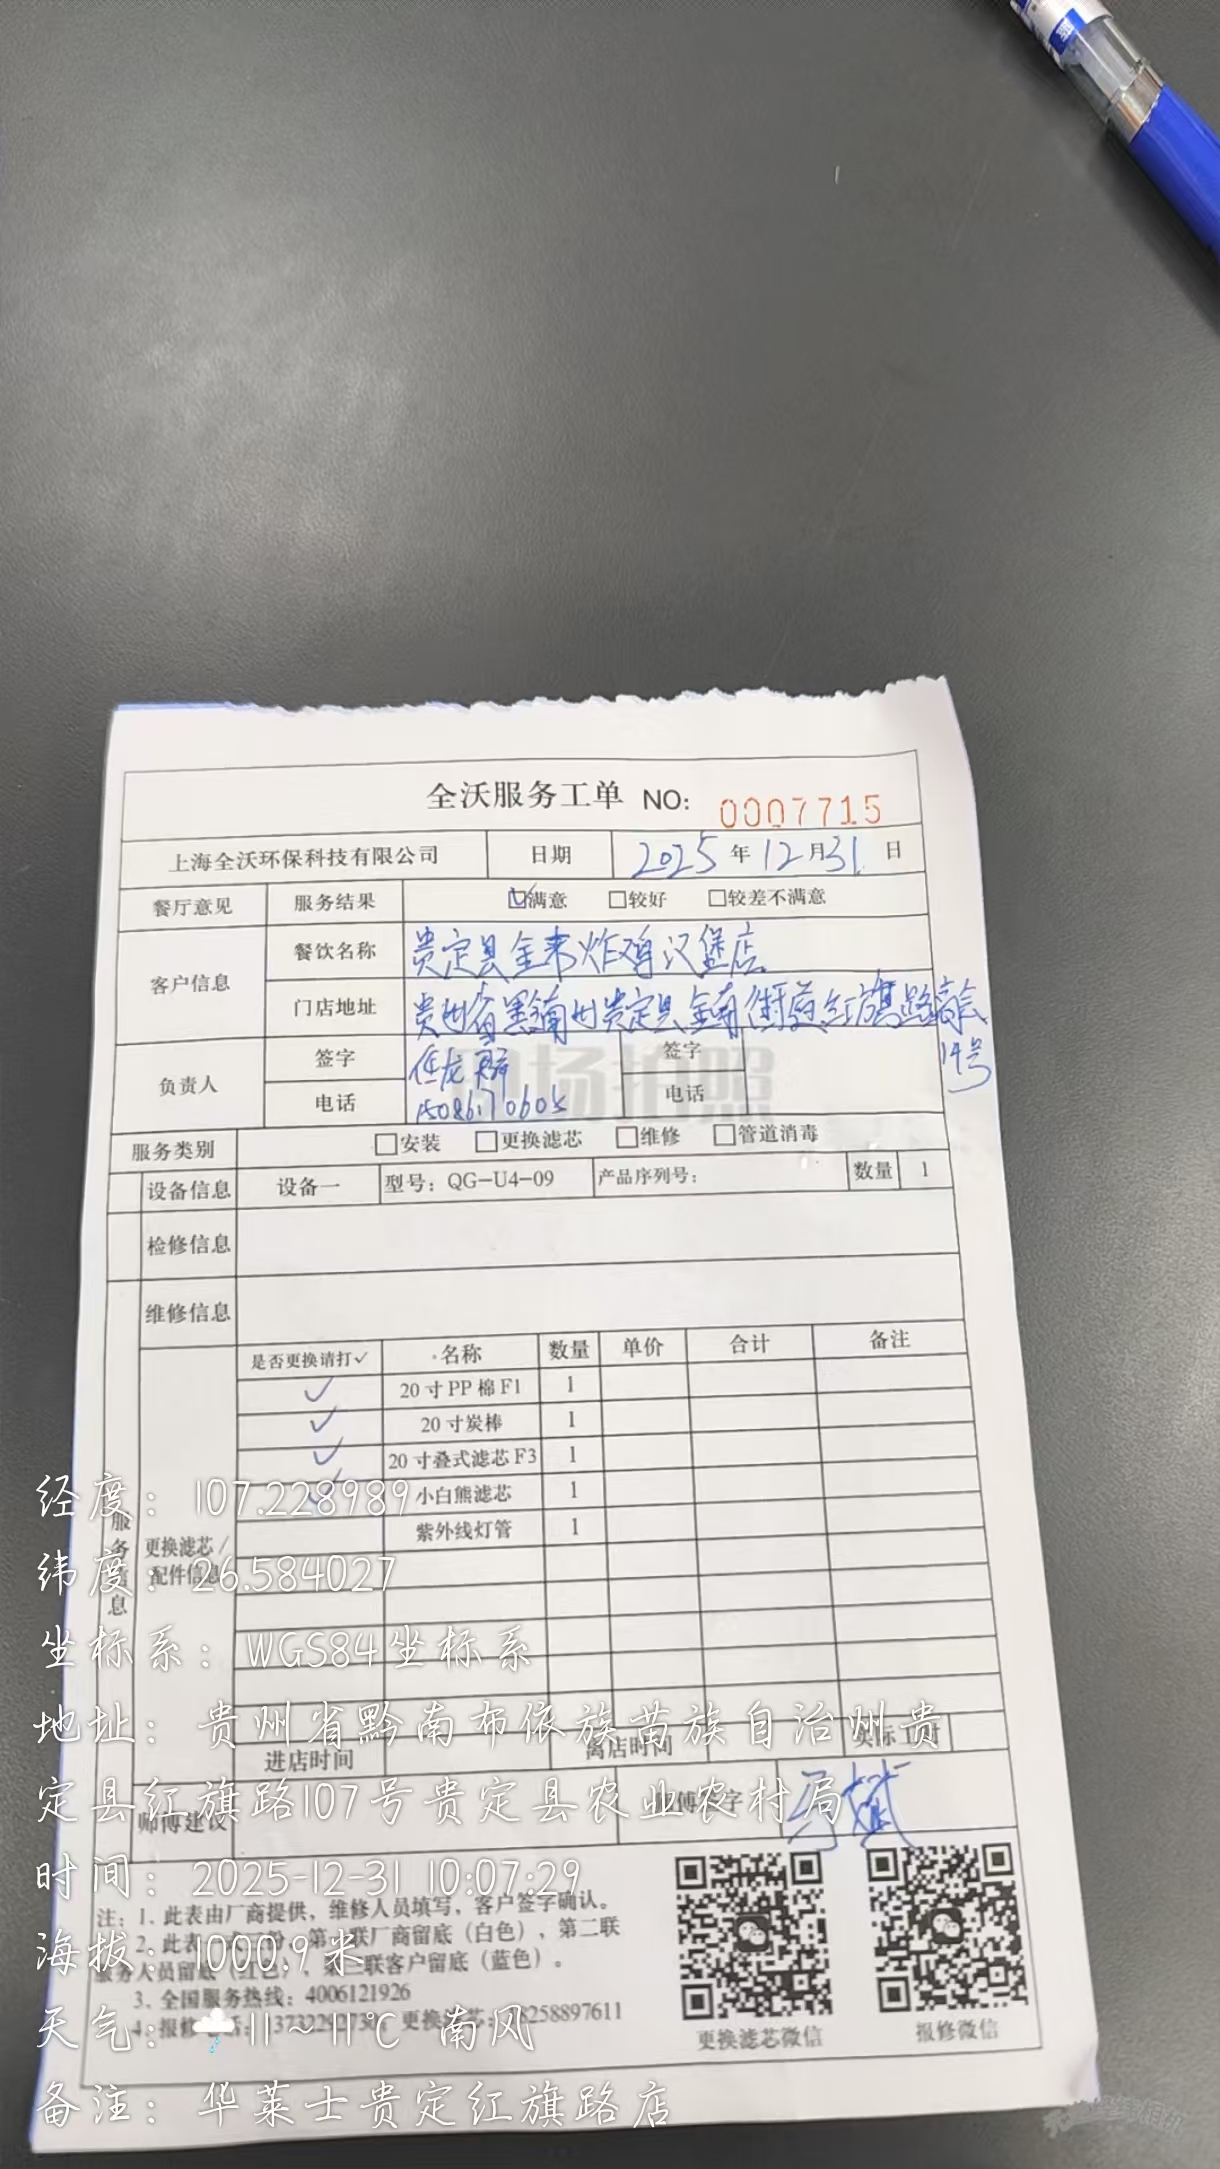 全沃服务工单 NO: 0007715
上海全沃环保科技有限公司 日期 2025年12月31日
餐厅意见 服务结果 ☑满意 □较好 □较差不满意
客户信息 餐饮名称 贵定县金来炸鸡汉堡店
门店地址 贵州省黔南州贵定县金南街道红旗路
14号
负责人 签字 任龙 签字
电话 15086170605 电话
现场拍照
服务类别 □安装 □更换滤芯 □维修 □管道消毒
设备信息 设备一 型号：QG-U4-09 产品序列号： 数量 1
检修信息
维修信息
服务信息
更换滤芯/配件信息
是否更换请打✓ 名称 数量 单价 合计 备注
✓ 20寸PP棉F1 1
✓ 20寸炭棒 1
✓ 20寸叠式滤芯F3 1
✓ 小白熊滤芯 1
紫外线灯管 1
进店时间 离店时间 实际工时
师傅建议 师傅签字
注：1. 此表由厂商提供，维修人员填写，客户签字确认。
2. 此表 第 联厂商留底（白色），第二联
服务人员留底（红色），第三联客户留底（蓝色）。
3. 全国服务热线：4006121926
4. 报修 更换滤芯： 8258897611
更换滤芯微信 报修微信
经度：107.228989
纬度：26.584027
坐标系：WGS84坐标系
地址：贵州省黔南布依族苗族自治州贵
定县红旗路107号贵定县农业农村局
时间：2025-12-31 10:07:29
海拔：1000.9米
天气：11~11℃ 南风
备注：华莱士贵定红旗路店